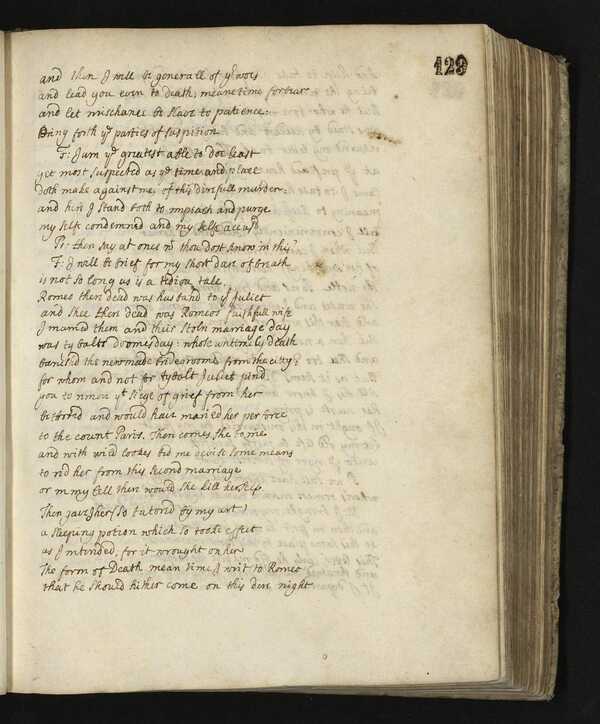 429
and then I will be generall of yr woes
and lead you even to death, meane time forbear
and let mischance be slave to patience:
Bring forth ye parties of suspition
F: I am ye greatest able to doe least
yet most suspected as ye time and place
doth make against me, of this direfull murder:
and here I stand both to impeach and purge
my selfe condemned and my selfe accusd
Pr: then say at once wt thou dost know in this?
F: I will be brief for my short date of breath
is not so long as is a tediou tale.
Romeo there dead was husband to yt Juliet
and shee there dead was Romeos faithfull wife
I married them and their stoln marriage day
was tybalts doomesday: whose untimely death
banishd the new made bridegroome from the city?
for whom and not for tybalt Juliet pind
you to remove yt siege of grief from her
betrothd and would have maried her perforce
to the count Paris. Then comes she to me
and with wild lookes bid me devise some means
to rid her from this second marriage
or in my cell there would she kill her self
Then gave I her (so tutored by my art)
a sleeping potion which so tooke effect
as I intended, for it wrought on her
The form of Death mean time I writ to Romeo
that he should hither come on this dire night